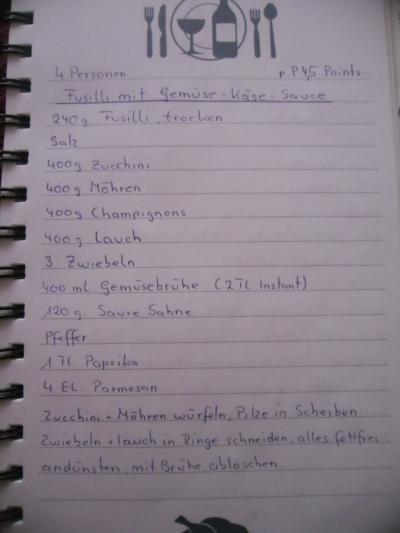 4 Personen p.P 4,5 Points
Fusilli mit Gemüse-Käse-Sauce
240g Fusilli, trocken
Salz
400g Zucchini
400g Möhren
400g Champignons
400g Lauch
3 Zwiebeln
400 ml Gemüsebrühe (2 TL Instant)
120 g. Saure Sahne
Pfeffer
1 TL. Paprika
4 EL. Parmesan
Zucchini + Möhren würfeln, Pilze in Scheiben
Zwiebeln + lauch in Ringe schneiden, alles fettfrei
andünsten, mit Brühe ablöschen.